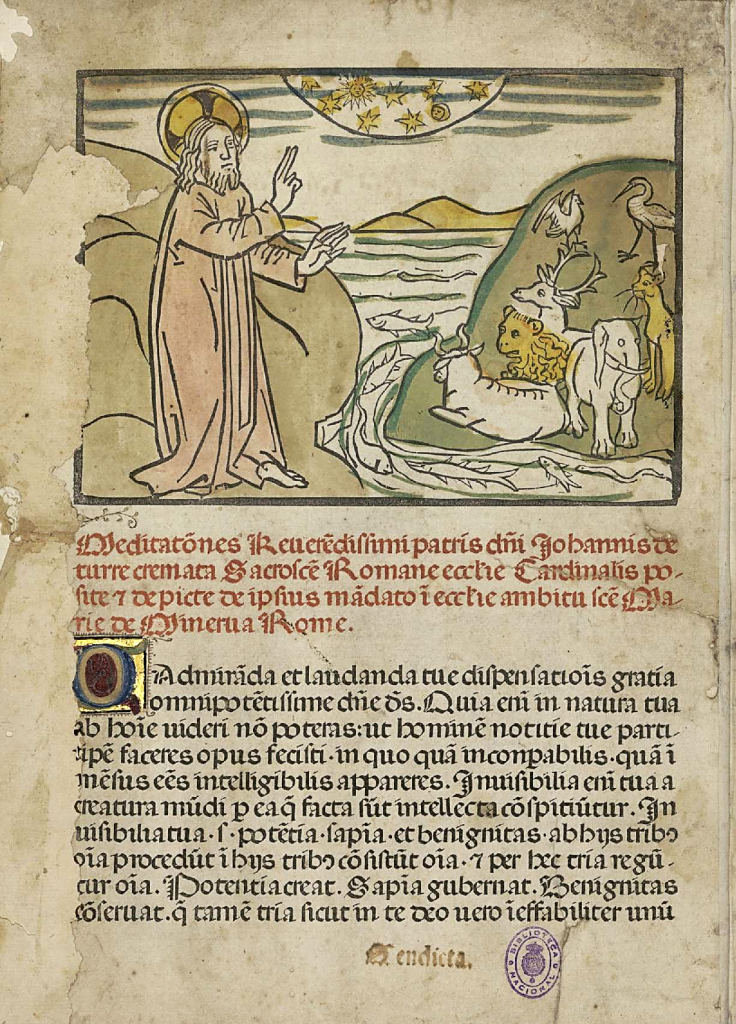 Meditatōnes Reuerēdissimi patris dn̄i Johannis de
turre cremata Sacrosc̄e Romane eccl̄ie Cardinalis po-
site ⁊ depicte de ipsius mādato ī eccl̄ie ambitu sc̄e Ma-
rie de Minerua Rome.
O Admirāda et laudanda tue dispensatiōis gratia
omnipotētissime dn̄e ds̄. Quia em̄ in natura tua
ab hoīe uideri nō poteras: ut hominē notitie tue parti-
cipē faceres opus fecisti · in quo quā inconp̄abilis · quā ī
mēsus eēs intelligibilis appareres. Inuisibilia em̄ tua a
creatura mūdi p ea q̄ facta sūt intellecta cōspitiūtur. In
uisibilia tua · s · potētia · sap̄ia · et benignitas · ab hys tribꝰ
oīa procedūt ī hys tribꝰ cōsistūt oīa · ⁊ per hec tria regū-
tur oīa. Potentia creat. Sap̄ia gubernat. Benignitas
cōseruat. q̄ tamē tria sicut in te deo uero īeffabiliter unū
BIBLIOTECA NACIONAL